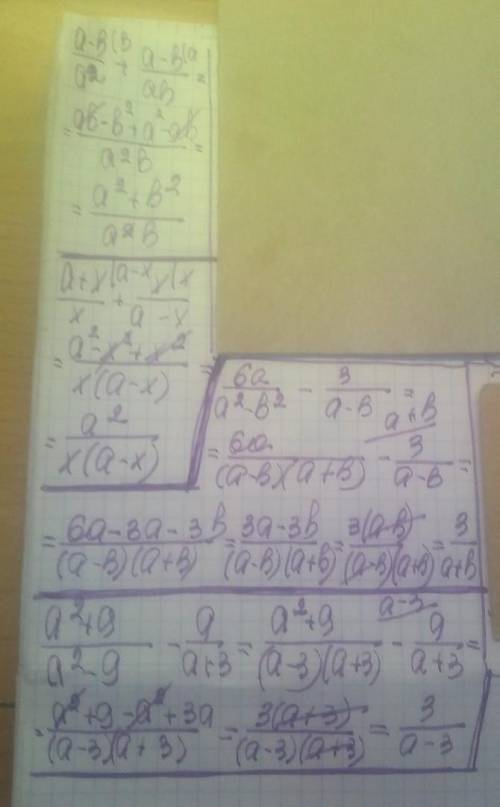 (a-b)/a² (b + (a-b)/ab (a =
= (ab-b²+a²-ab)/(a²b) =
= (a²+b²)/(a²b)
(a+x)/x (a-x + x/(a-x) (x
= (a²-x²+x²)/(x(a-x)) =
= a²/(x(a-x))
6a/(a²-b²) - 3/(a-b) =
= 6a/((a-b)(a+b)) - 3/(a-b) (a+b =
= (6a-3a-3b)/((a-b)(a+b)) = (3a-3b)/((a-b)(a+b)) = 3(a-b)/((a-b)(a+b)) = 3/(a+b)
(a²+9)/(a²-9) - a/(a+3) = (a²+9)/((a-3)(a+3)) - a/(a+3) (a-3 =
= (a²+9-a²+3a)/((a-3)(a+3)) = 3(a+3)/((a-3)(a+3)) = 3/(a-3)